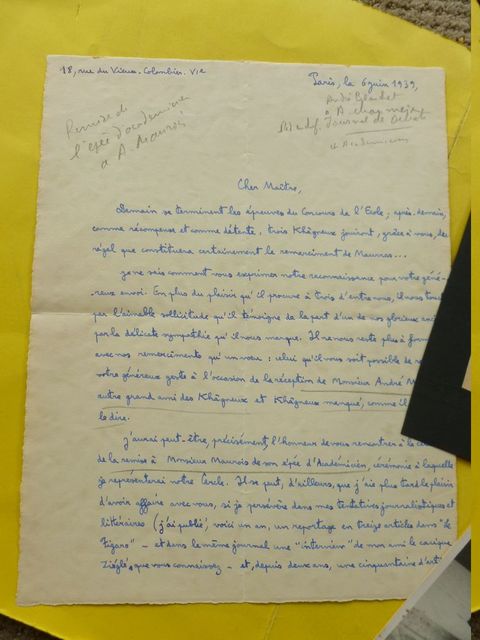 18, rue du Vieux-Colombier. VIe
Paris, le 6 juin 1939,
Remise de
l'épée d'académicien
à A. Maurois
André
à A. Chaumeix
Journal des Débats
et Académicien
Cher Maître,
Demain se terminent les épreuves du Concours de l'Ecole; après-demain,
comme récompense et comme détente, trois Khâgneux jouiront, grâce à vous, du
régal que constituera certainement le remerciement de Maurras...
Je ne sais comment vous exprimer notre reconnaissance pour votre géné-
reux envoi. En plus du plaisir qu'il procure à trois d'entre nous, il nous
par l'aimable sollicitude qu'il témoigne de la part d'un de nos glorieux
par la délicate sympathie qu'il nous marque. Il ne nous reste plus à
avec nos remerciements qu'un vœu : celui qu'il vous soit possible de
votre généreux geste à l'occasion de la réception de Monsieur André
autre grand ami des Khâgneux et Khâgneux manqué, comme il
le dire.
J'aurai peut-être, précisément, l'honneur de vous rencontrer à la
de la remise à Monsieur Maurois de son épée d'Académicien, cérémonie à laquelle
je représenterai notre Cercle. Il se peut, d'ailleurs, que j'aie plus tard le plaisir
d'avoir affaire avec vous, si je persévère dans mes tentatives journalistiques et
littéraires (j'ai publié, voici un an, un reportage en treize articles dans "le
Figaro" - et dans le même journal une "interview" de mon ami le cacique
que vous connaissez - et, depuis deux ans, une cinquantaine d'art